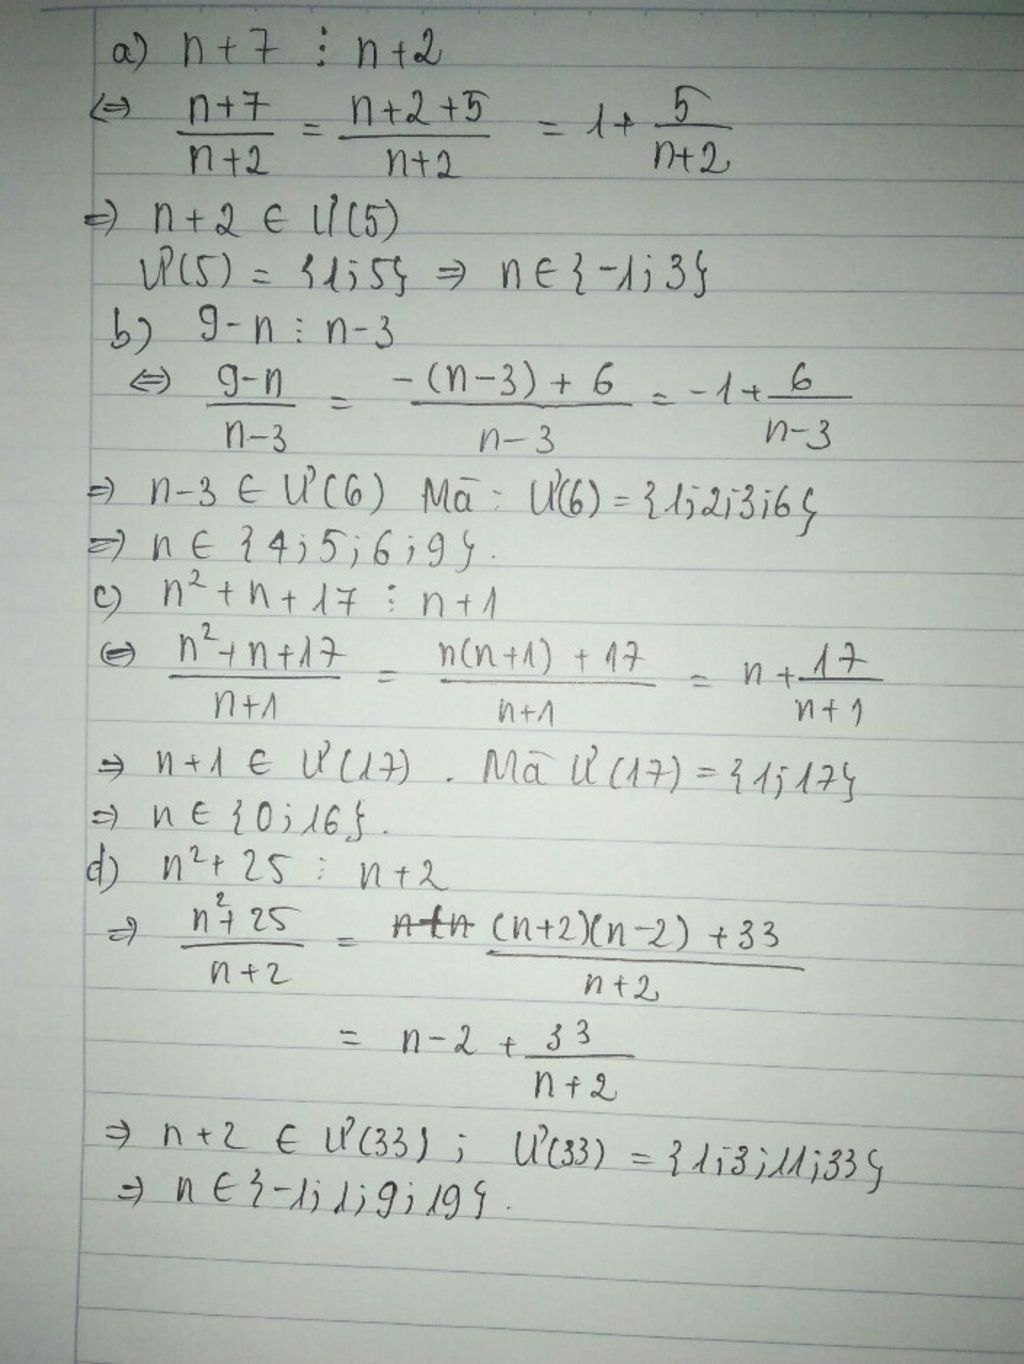 a) n+7 ⋮ n+2
⇔ (n+7)/(n+2) = (n+2+5)/(n+2) = 1+ 5/(n+2)
⇒ n+2 ∈ Ư(5)
Ư(5) = {1;5} ⇒ n∈{-1;3}
b) 9-n ⋮ n-3
⇔ (9-n)/(n-3) = (-(n-3)+6)/(n-3) = -1+ 6/(n-3)
⇒ n-3 ∈ Ư(6) Mà: Ư(6) = {1;2;3;6}
⇒ n ∈ {4;5;6;9}.
c) n²+n+17 ⋮ n+1
⇔ (n²+n+17)/(n+1) = (n(n+1)+17)/(n+1) = n+ 17/(n+1)
⇒ n+1 ∈ Ư(17). Mà Ư(17) = {1;17}
⇒ n∈{0;16}.
d) n²+25 ⋮ n+2
⇒ (n²+25)/(n+2) = ((n+2)(n-2)+33)/(n+2)
= n-2 + 33/(n+2)
⇒ n+2 ∈ Ư(33); Ư(33) = {1;3;11;33}
⇒ n∈{-1;1;9;19}.